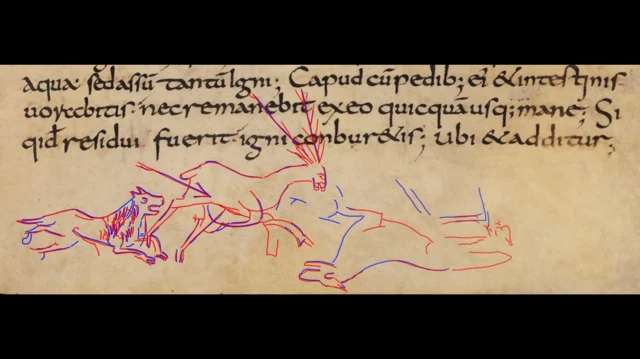 aqua: sed assū tantū Igni; Capud cū pedib; ei & intestinis
uorabitis. nec remanebit ex eo quicquā usq; mane; Si
qid residui fuerit. igni conbur&is; Ubi & additur;